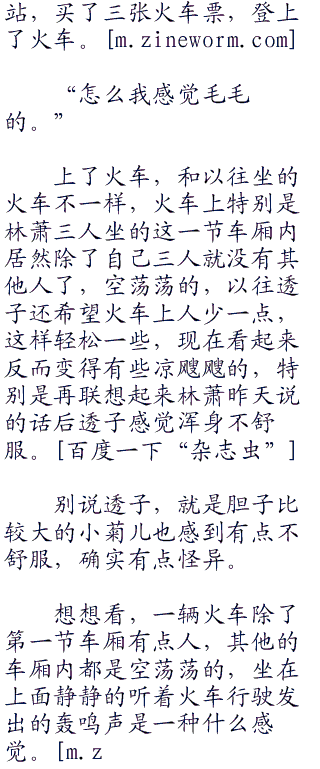 站，买了三张火车票，登上
了火车。[m.zineworm.com]
“怎么我感觉毛毛
的。”
上了火车，和以往坐的
火车不一样，火车上特别是
林萧三人坐的这一节车厢内
居然除了自己三人就没有其
他人了，空荡荡的，以往透
子还希望火车上人少一点，
这样轻松一些，现在看起来
反而变得有些凉飕飕的，特
别是再联想起来林萧昨天说
的话后透子感觉浑身不舒
服。[百度一下“杂志虫”]
别说透子，就是胆子比
较大的小菊儿也感到有点不
舒服，确实有点怪异。
想想看，一辆火车除了
第一节车厢有点人，其他的
车厢内都是空荡荡的，坐在
上面静静的听着火车行驶发
出的轰鸣声是一种什么感
觉。[m.z